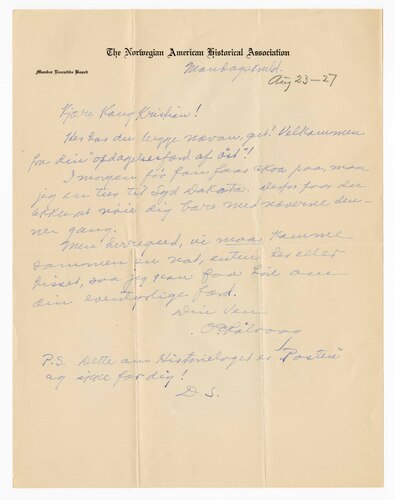 The Norwegian American Historical Association
Member Executive Board
Mandagskveld.
Aug 23—27
Kjære Kong Kristian!
Her har du begge nævan, gut! Velkommen
fra din "opdagelsesfærd af øst"!
I morgen før fan faar skoa paa, maa
jeg en tur til Syd Dakota. derfor faar du
nøie dig bare med næverne den-
ner gang.
Men herregud, vi maa komme
sammen en nat, enten her eller
hisset, saa jeg kan faa høre om
din eventyrlige færd.
Din ven
O E Rølvaag
P.S. Dette om Historielaget er i "Posten"
og ikke for dig!
D. S.